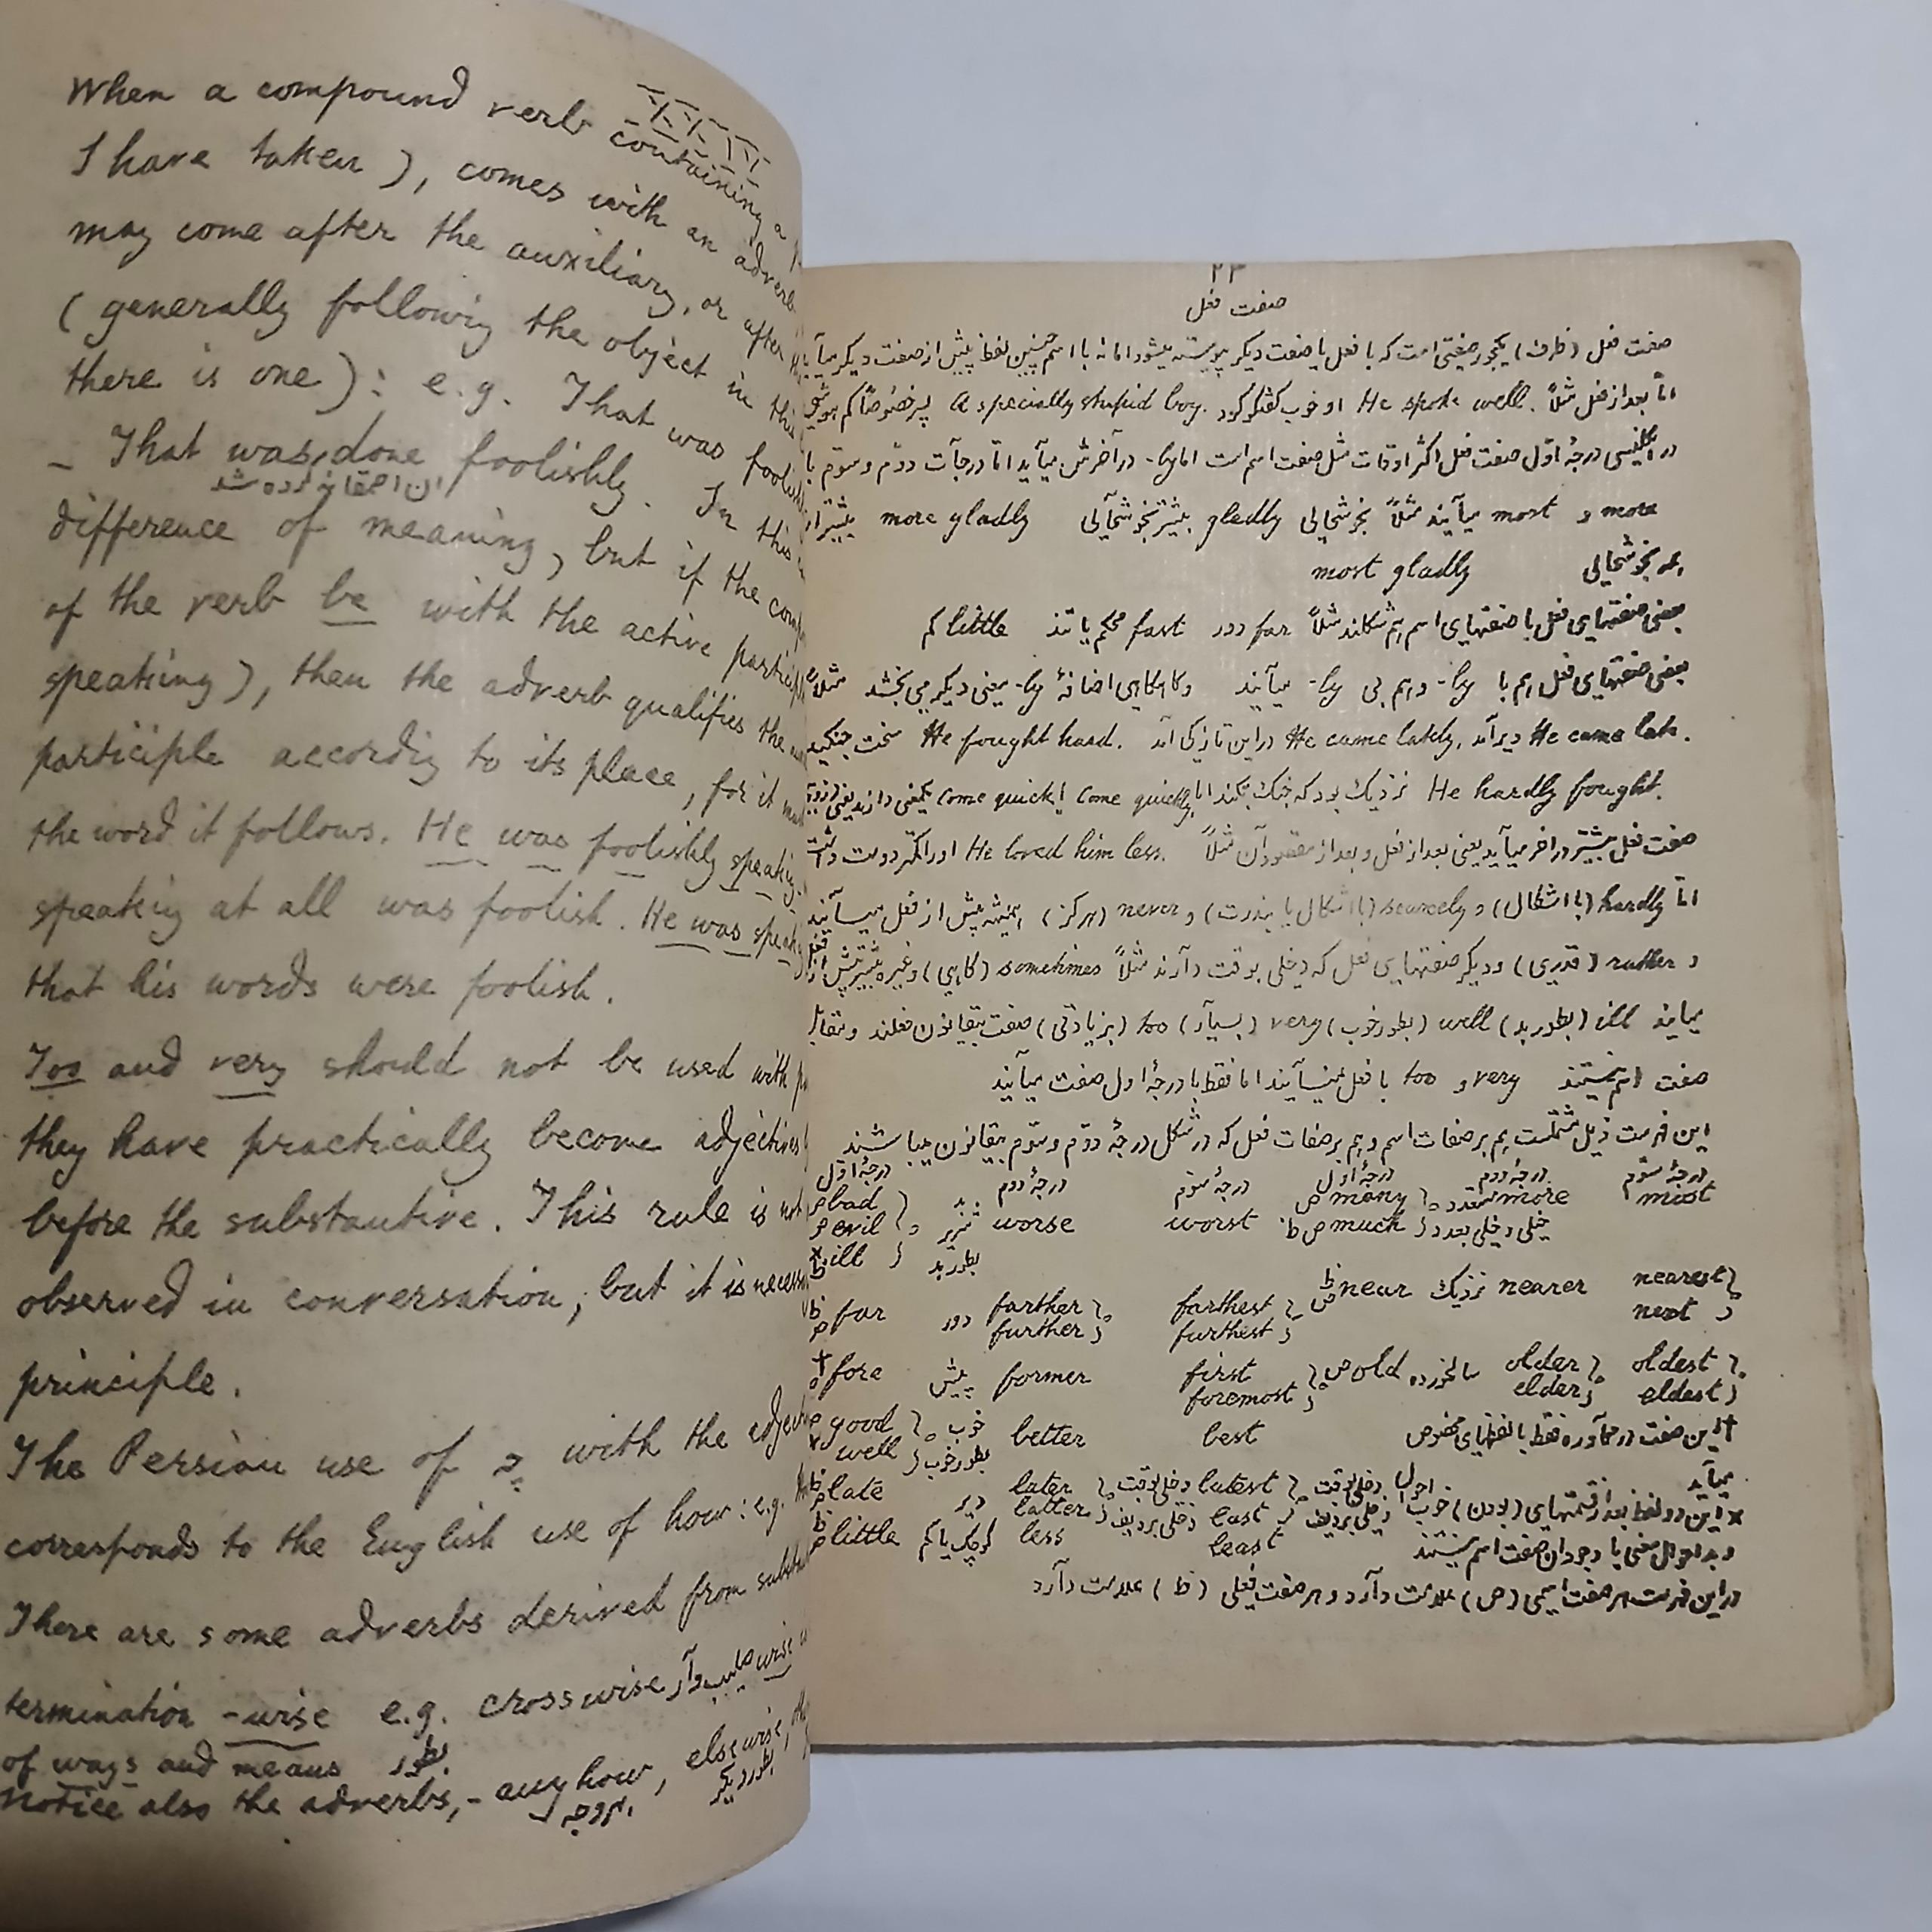 When a compound verb containing a
I have taken), comes with an adverb
may come after the auxiliary, or after
(generally following the object in this
there is one): e.g. That was foolishly
- That was done foolishly. In this
آن احمقانه کرده شد
difference of meaning, but if the comp
of the verb be with the active participle
speaking), then the adverb qualifies the
participle according to its place, for it
the word it follows. He was foolishly speaking.
speaking at all was foolish. He was speak
that his words were foolish.
Too and very should not be used with
they have practically become adjectives
before the substantive. This rule is not
observed in conversation, but it is necess
principle.
The Persian use of به with the adject
corresponds to the English use of how: e.g.
There are some adverbs derived from subst
termination -wise e.g. crosswise صلیب وار wise
of ways and means بطور
Notice also the adverbs, - anyhow, elsewise,
بهروجه بطور دیگر
۲۳
صفت فعل
صفت فعل (ظرف) یکجور صفتی است که با فعل یا صفت دیگر پیوسته میشود اما نه با اسم چنین لفظ پیش از صفت دیگر میآید
امّا بعد از فعل مثلاً He spoke well. او خوب گفتگو کرد A specially stupid boy. پسر خصوصاً کم هوشی
در انگلیسی درجهٔ اوّل صفت فعل اکثر اوقات مثل صفت اسم است اما ly- در آخرش میآید امّا درجات دوّم و سوّم با
more و most میآیند مثلاً بخوشحالی gladly بیشتر بخوشحالی more gladly بیشتر از
همه بخوشحالی most gladly
بعضی صفتهای فعل با صفتهای اسم هم شکلند مثلاً far دور fast محکم یا تند little کم
بعضی صفتهای فعل هم با ly- و هم بی ly- میآیند و گاهگاهی اضافهٔ ly- معنی دیگر می بخشد مثلاً
He came late. دیر آمد He came lately. در این تازگی آمد He fought hard. سخت جنگید
He hardly fought. نزدیک بود که جنگ نکند اما come quickly یا come quick یکمعنی دارند یعنی
صفت فعل بیشتر در آخر میآید یعنی بعد از فعل و بعد از مفعول آن مثلاً He loved him less. او را کمتر دوست داشت
امّا hardly (با اشکال) و scarcely (با اشکال یا بندرت) و never (هرگز) همیشه پیش از فعل میآیند
و rather (قدری) و دیگر صفتهای فعل که دخلی بوقت دارند مثلاً sometimes (گاهی) و غیره بیشتر پیش از فعل
میایند ill (بطور بد) well (بطور خوب) very (بسیار) too (بزیادتی) صفت بیقانون فعلند و مقابل
صفت اسم نیستند very و too با فعل نمیآیند اما فقط با درجهٔ اول صفت میآیند
این فهرست ذیل مشتملست هم بر صفات اسم و هم بر صفات فعل که در شکل درجهٔ دوّم و سوّم بیقانون میباشند
درجهٔ اوّل درجهٔ دوم درجهٔ سوّم درجهٔ اوّل درجهٔ دوم درجهٔ سوّم
ص bad ص many متعدد more most
ص evil شریر worse worst ص ظ much خیلی و خیلی بعدد
× ظ ill بطور بد
ظ ص near نزدیک nearer nearest
ظ ص far دور farther farthest next
further furthest
† fore پیش former first ص old سالخورده older oldest
foremost elder eldest
ص good خوب better best † این صفت در محاوره فقط با لفظهای مخصوص
× well بطور خوب میآید
ظ ص late دیر later دخلی بوقت latest دخلی بوقت
latter دخلی بردیف last دخلی بردیف × این دو لفظ بعد از قسمتهای (بودن) خوب احوال
ظ ص little کوچک یا کم less least و بد احوال معنی با وجود آن صفت اسم نیستند
در این فهرست هر صفت اسمی (ص) علامت دارد و هر صفت فعلی (ظ) علامت دارد